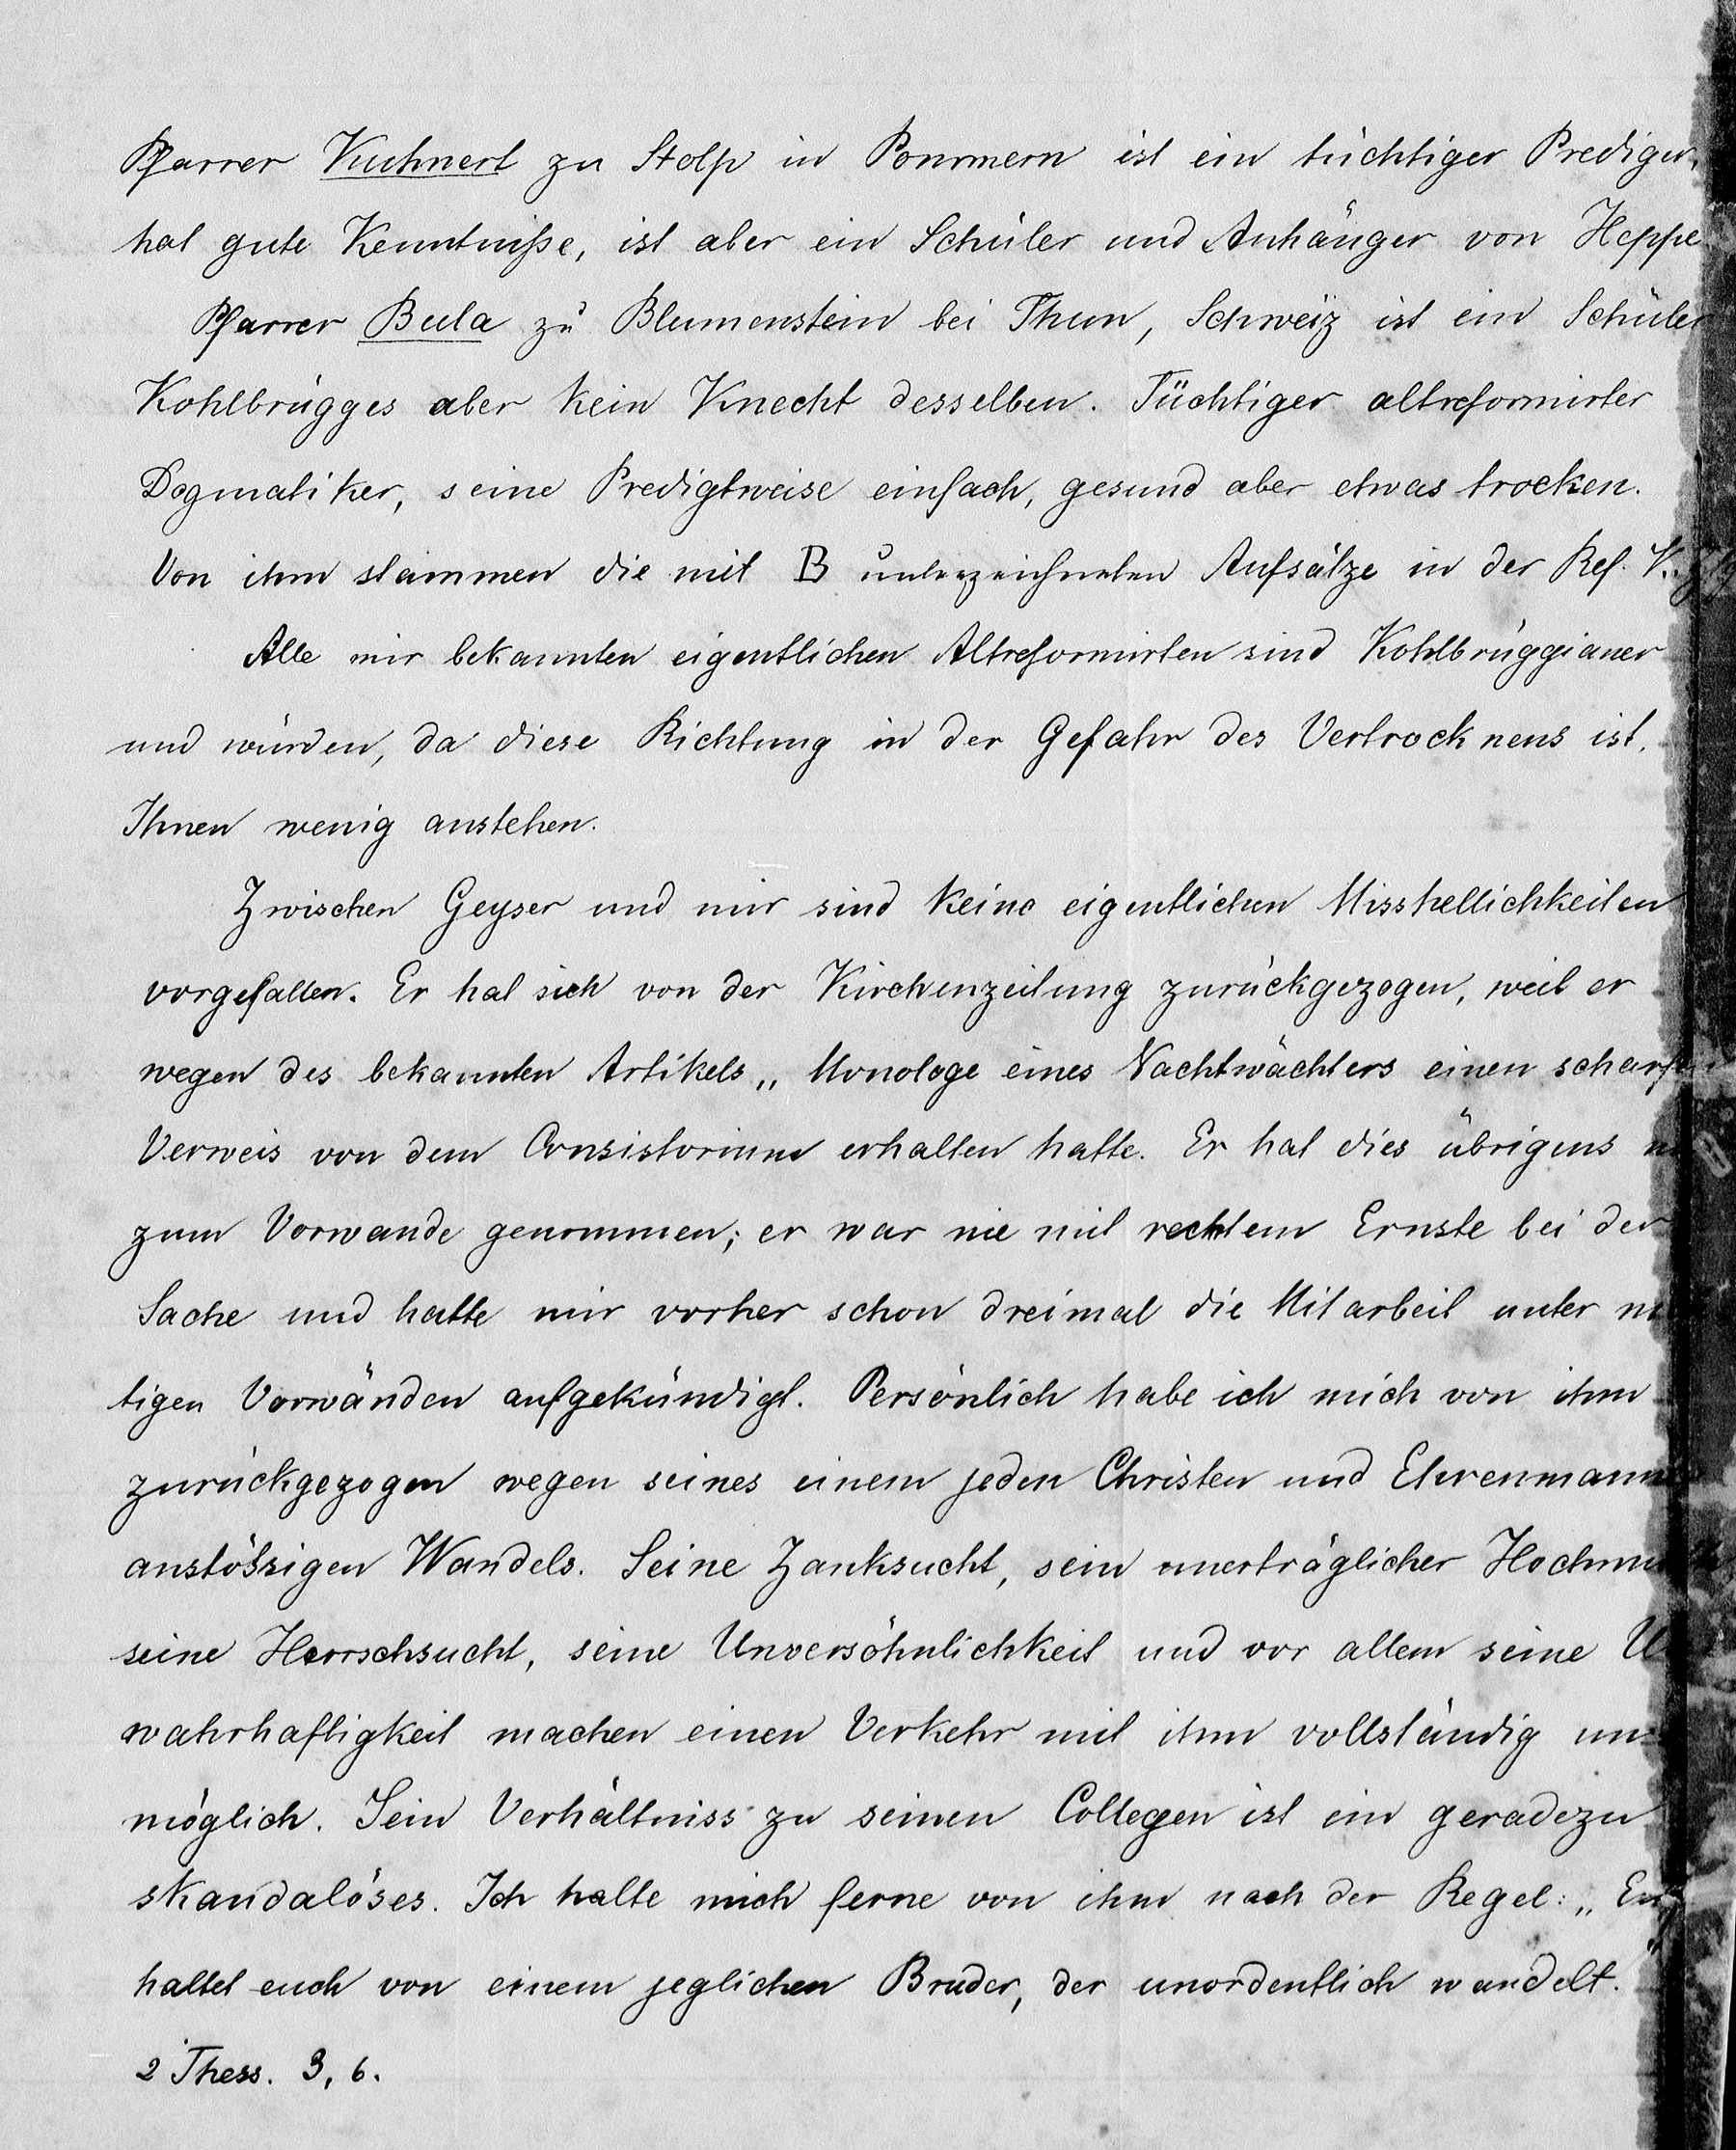 Pfarrer Kuhnert zu Stolp in Pommern ist ein tüchtiger Prediger,
hat gute Kenntniße, ist aber ein Schüler und Anhänger von Heppe
Pfarrer Bula zu Blumenstein bei Thun, Schweiz ist ein Schüler
Kohlbrügges aber kein Knecht desselben. Tüchtiger altreformirter
Dogmatiker, seine Predigtweise einfach, gesund aber etwas trocken.
Von ihm stammen die mit B unterzeichneten Aufsätze in der Ref.
Alle mir bekannten eigentlichen Altreformirten sind Kohlbrüggianer
und würden, da diese Richtung in der Gefahr des Vertrocknens ist,
Ihnen wenig anstehen.
Zwischen Geyser und mir sind keine eigentlichen Misshellichkeiten
vorgefallen. Er hat sich von der Kirchenzeitung zurückgezogen, weil er
wegen des bekannten Artikels „Monologe eines Nachtwächters einen scharfen
Verweis von dem Consistorium erhalten hatte. Er hat dies übrigens
zum Vorwande genommen; er war nie mit rechtem Ernste bei der
Sache und hatte mir vorher schon dreimal die Mitarbeit unter
tigen Vorwänden aufgekündigt. Persönlich habe ich mich von ihm
zurückgezogen wegen seines einem jeden Christen und Ehrenmann
anstössigen Wandels. Seine Zanksucht, sein unerträglicher Hochmu
seine Herrschsucht, seine Unversöhnlichkeit und vor allem seine U
wahrhaftigkeit machen einen Verkehr mit ihm vollständig un
möglich. Sein Verhältniss zu seinen Collegen ist ein geradezu
skandalöses. Ich halte mich ferne von ihm nach der Regel: „Ent
haltet euch von einem jeglichen Bruder, der unordentlich wandelt."
2 Thess. 3, 6.